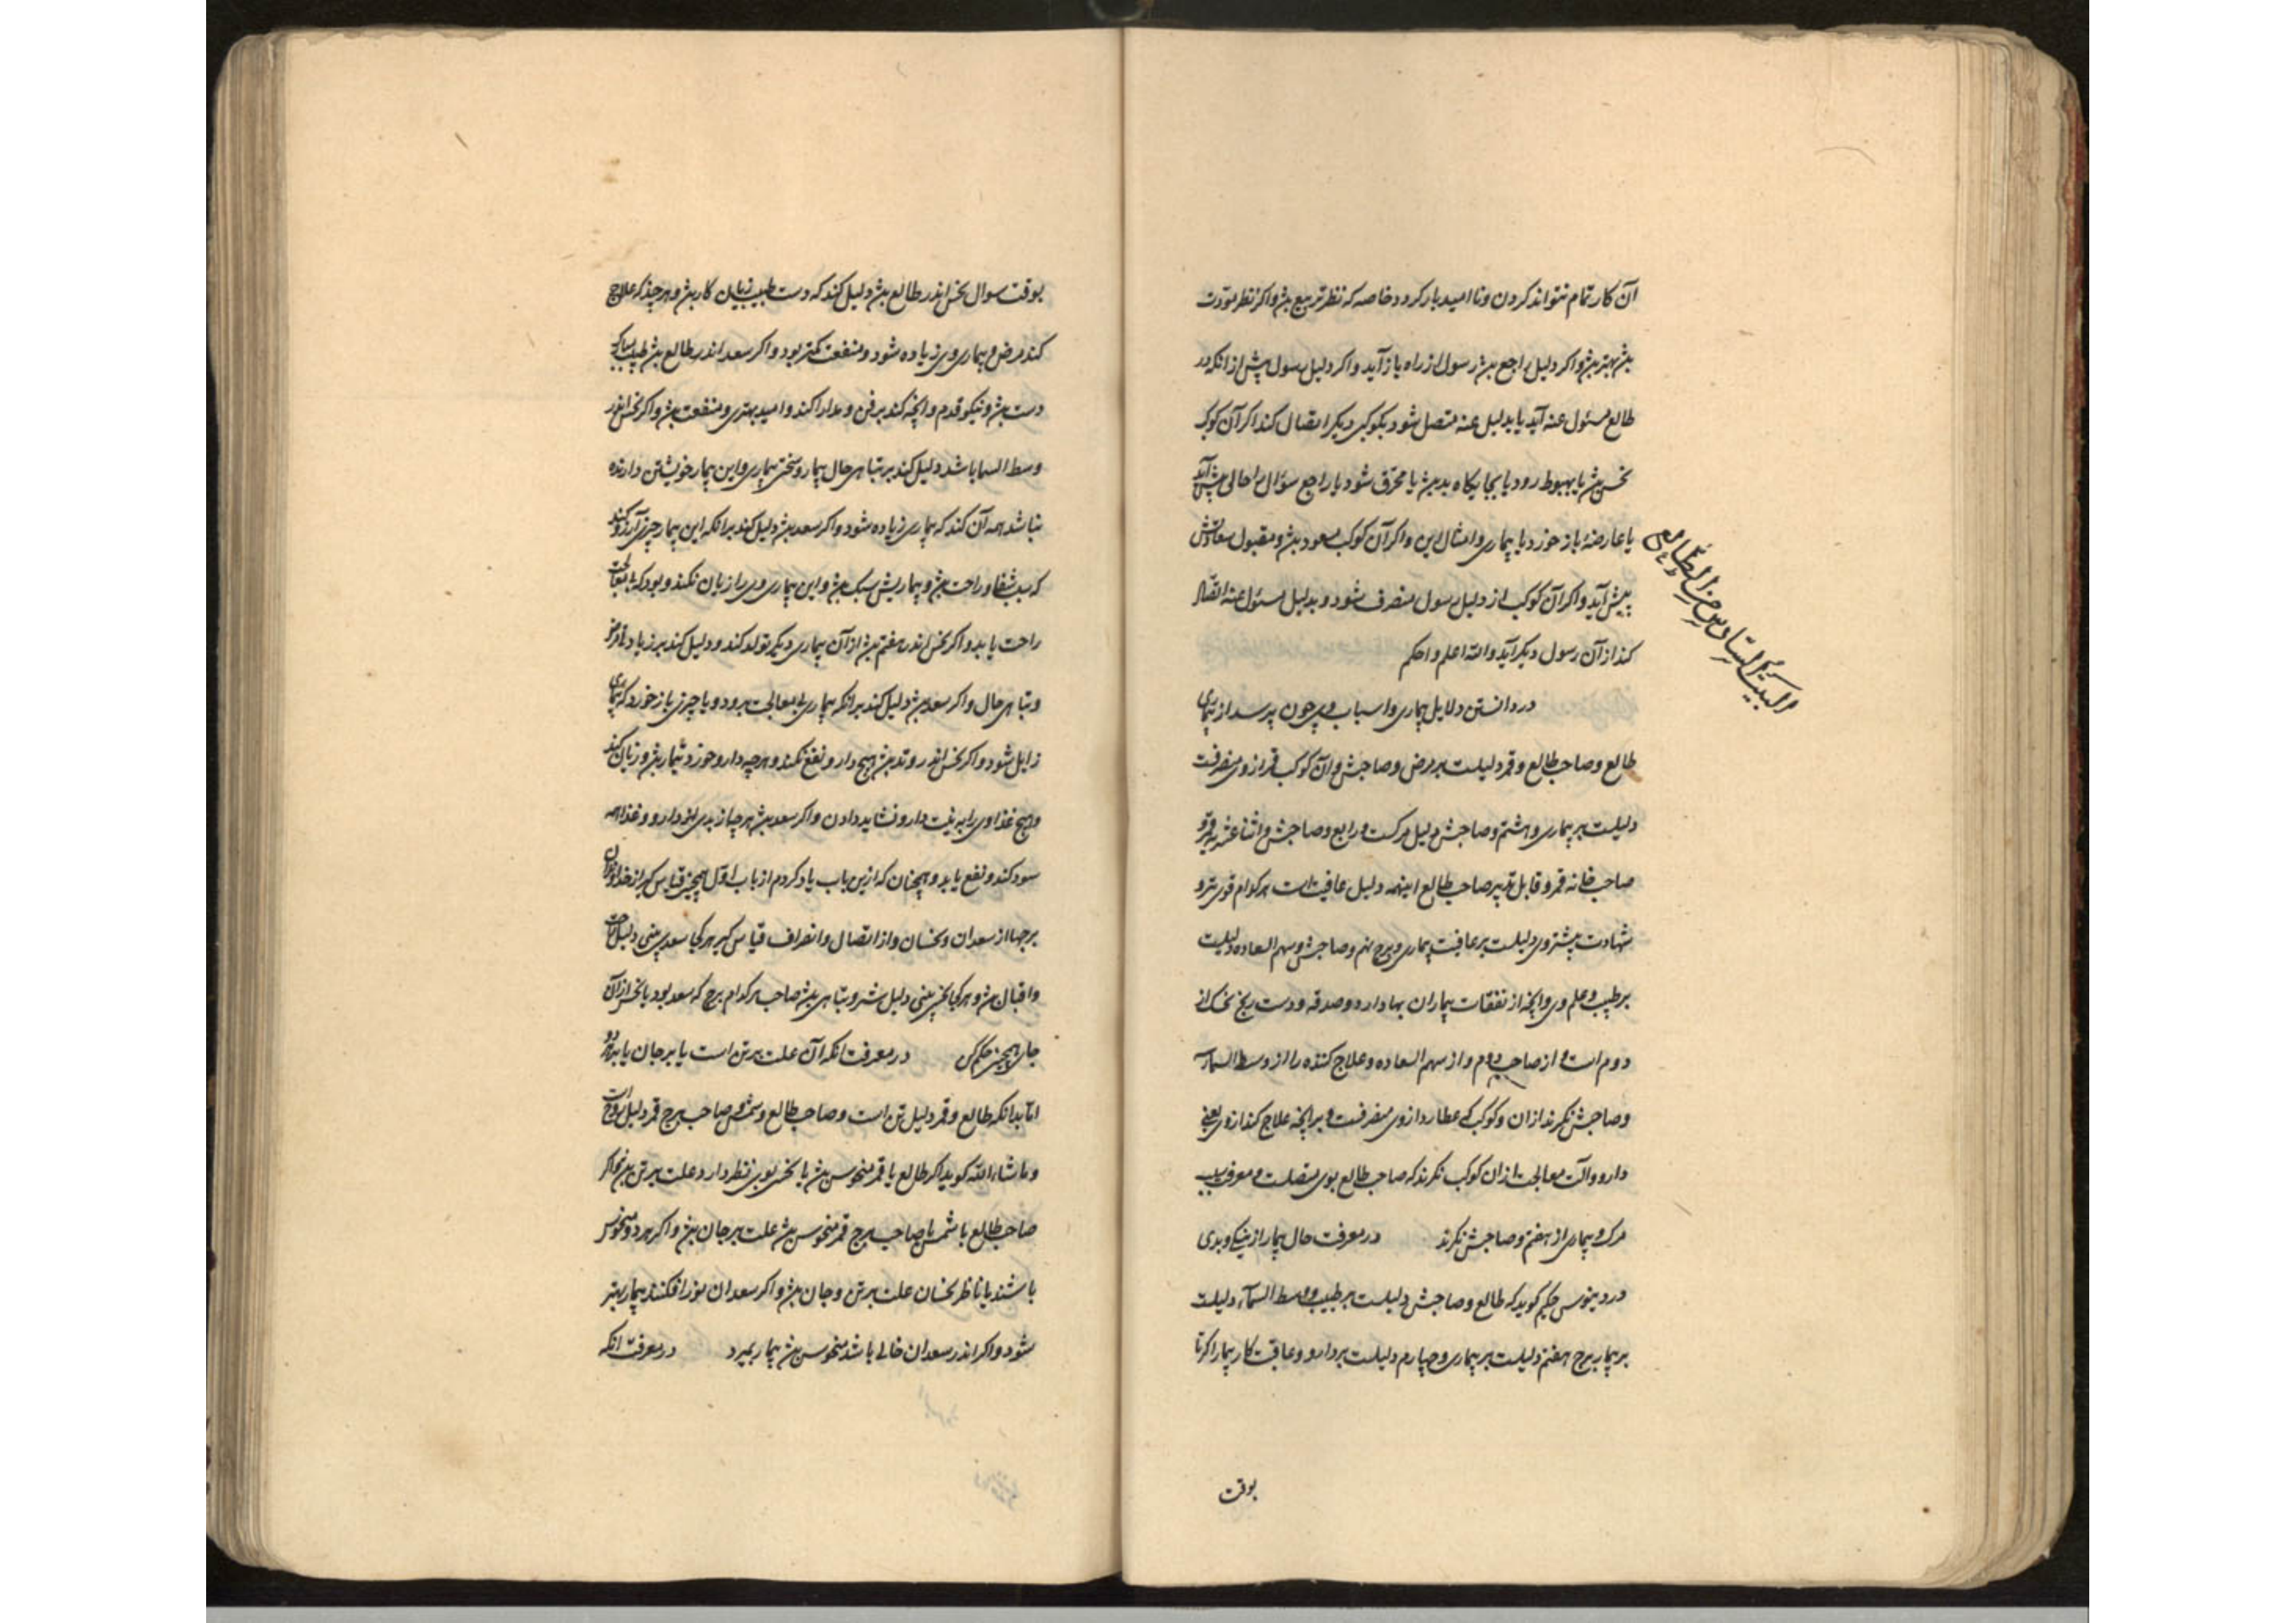 آن کار تمام نتواند کردن و نا امید باز کردد خاصه که نظر تربیع بش و اکر نظر مودت
بش بهتر بش و اکر دلیل راجع بش رسول از راه باز آید و اکر دلیل رسول پیش از انکه در
طالع مسئول عنه آید یا بدلیل عنه متصل شود بکوکبی دیکر اتصال کند اکر آن کوکب
نحس بش یا بهبوط رود یا بجایکاه بد بش یا محترق شود یا راجع سؤال را حالی پیش آید
یا عارضهٔ باز خورد یا بیماری و امثال این و اکر آن کوکب مسعود بش و مقبول سعادتش
پیش آید و اکر آن کوکب از دلیل رسول منصرف شود و بدلیل مسئول عنه اتصال
کند از آن رسول دیکر آید والله اعلم و احکم
البیت السادس من الطالع
در دانستن دلایل بیماری و اسباب وی چون پرسد از بیماری
طالع و صاحب طالع و قمر دلیلست بر مرض و صاحبش و آن کوکب قمر از وی منصرفست
دلیلست بر بیماری و هشتم و صاحبش دلیل مرکست و رابع و صاحبش و اثنا عشریه قمر و
صاحب خانه قمر و قابل تدبیر صاحب طالع اینهمه دلیل عاقبت است هر کدام قوی تر و
شهادت بیشتر وی دلیلست بر عاقبت بیماری و برج نهم و صاحبش و سهم السعاده دلیلست
بر طبیب و علم وی و آنچه از نفقات بیماران بها دارد و صدقه و دست رنج از
دوم است و از صاحب دوم و از سهم السعاده و علاج کننده را از وسط السمآء
و صاحبش نکرند از ان و کوکب که عطارد از وی منصرفست و بر آنچه علاج کند از وی یعنی
دارو و آلت معالجت از ان کوکب نکرند که صاحب طالع بوی متصلست و معرفت سبب
مرک و بیماری از هفتم و صاحبش نکرند در معرفت حال بیمار از نیکی و بدی
حکیم کوید که طالع و صاحبش دلیلست بر طبیب و وسط السمآء دلیلست
بر بیمار برج هفتم دلیلست بر بیماری و چهارم دلیلست بر دارو و عاقبت کار بیمار اکر تا
بوقت
بوقت سوال نحس اندر طالع بش دلیل کند که دست طبیب زیان کار بش و هر چند که علاج
کند مرض و بیماری وی زیاده شود و منفعت کمتر بود و اکر سعد اندر طالع بش طبیب سبک
دست بش و نیکو قدم و آنچه کند برفق و مدارا کند و امید بهتری و منفعت بش و اکر نحس اندر
وسط السما باشد دلیل کند بر تباهی حال بیمار و سختی بیماری و این بیمار خویشتن دارنده
نباشد همه آن کند که بیماری زیاده شود و اکر سعد بش دلیل کند بر انکه این بیمار چیزی آرزو کند
که سبب شفا و راحت بش و بیماریش سبک بش و این بیماری وی را زیان نکند و بود که بی معالجت
راحت یابد و اکر نحس اندر هفتم بش از آن بیماری دیکر تولد کند و دلیل کند بر زیادتی مرض
و تباهی حال و اکر سعد بش دلیل کند بر انکه بیماری بی معالجت برود و یا چیزی باز خورد که بیماری
زایل شود و اکر نحس اندر وتد بش هیچ دارو نفع نکند و هر چه دارو خورد تیمار بش و زیان کند
و هیچ غذا وی را به نیت دارو نشاید دادن و اکر سعد بش هر چیز از بدی دارو و غذا همه
سود کند و نفع یابد و همچنان که ازین باب یاد کردم از باب اول همچنین قیاس کیر از خداوندان
برجها از سعدان و نحسان و از اتصال و انصراف قیاس کیر هر کجا سعد بینی دلیل راحت
و اقبال بش و هر کجا نحس بینی دلیل شر و تباهی بش صاحب هر کدام برج که سعد بود یا نحس از آن
جای همچنین حکم کن در معرفت انکه آن علت بر تن است یا بر جان یا بر هر دو
اما بدانکه طالع و قمر دلیل تن است و صاحب طالع و شمس و صاحب برج قمر دلیل روح است
و ما شاء الله کوید اکر طالع یا قمر منحوس بش یا نحس بوی نظر دارد علت بر تن بش و اکر
صاحب طالع با شمس یا صاحب برج قمر منحوس بش علت بر جان بش و اکر هر دو منحوس
باشند یا ناظر نحسان علت بر تن و جان بش و اکر سعدان نور افکنند بیمار بهتر
شود و اکر اندر سعدان خالی باشد منحوس بش بیمار بمیرد در معرفت انکه